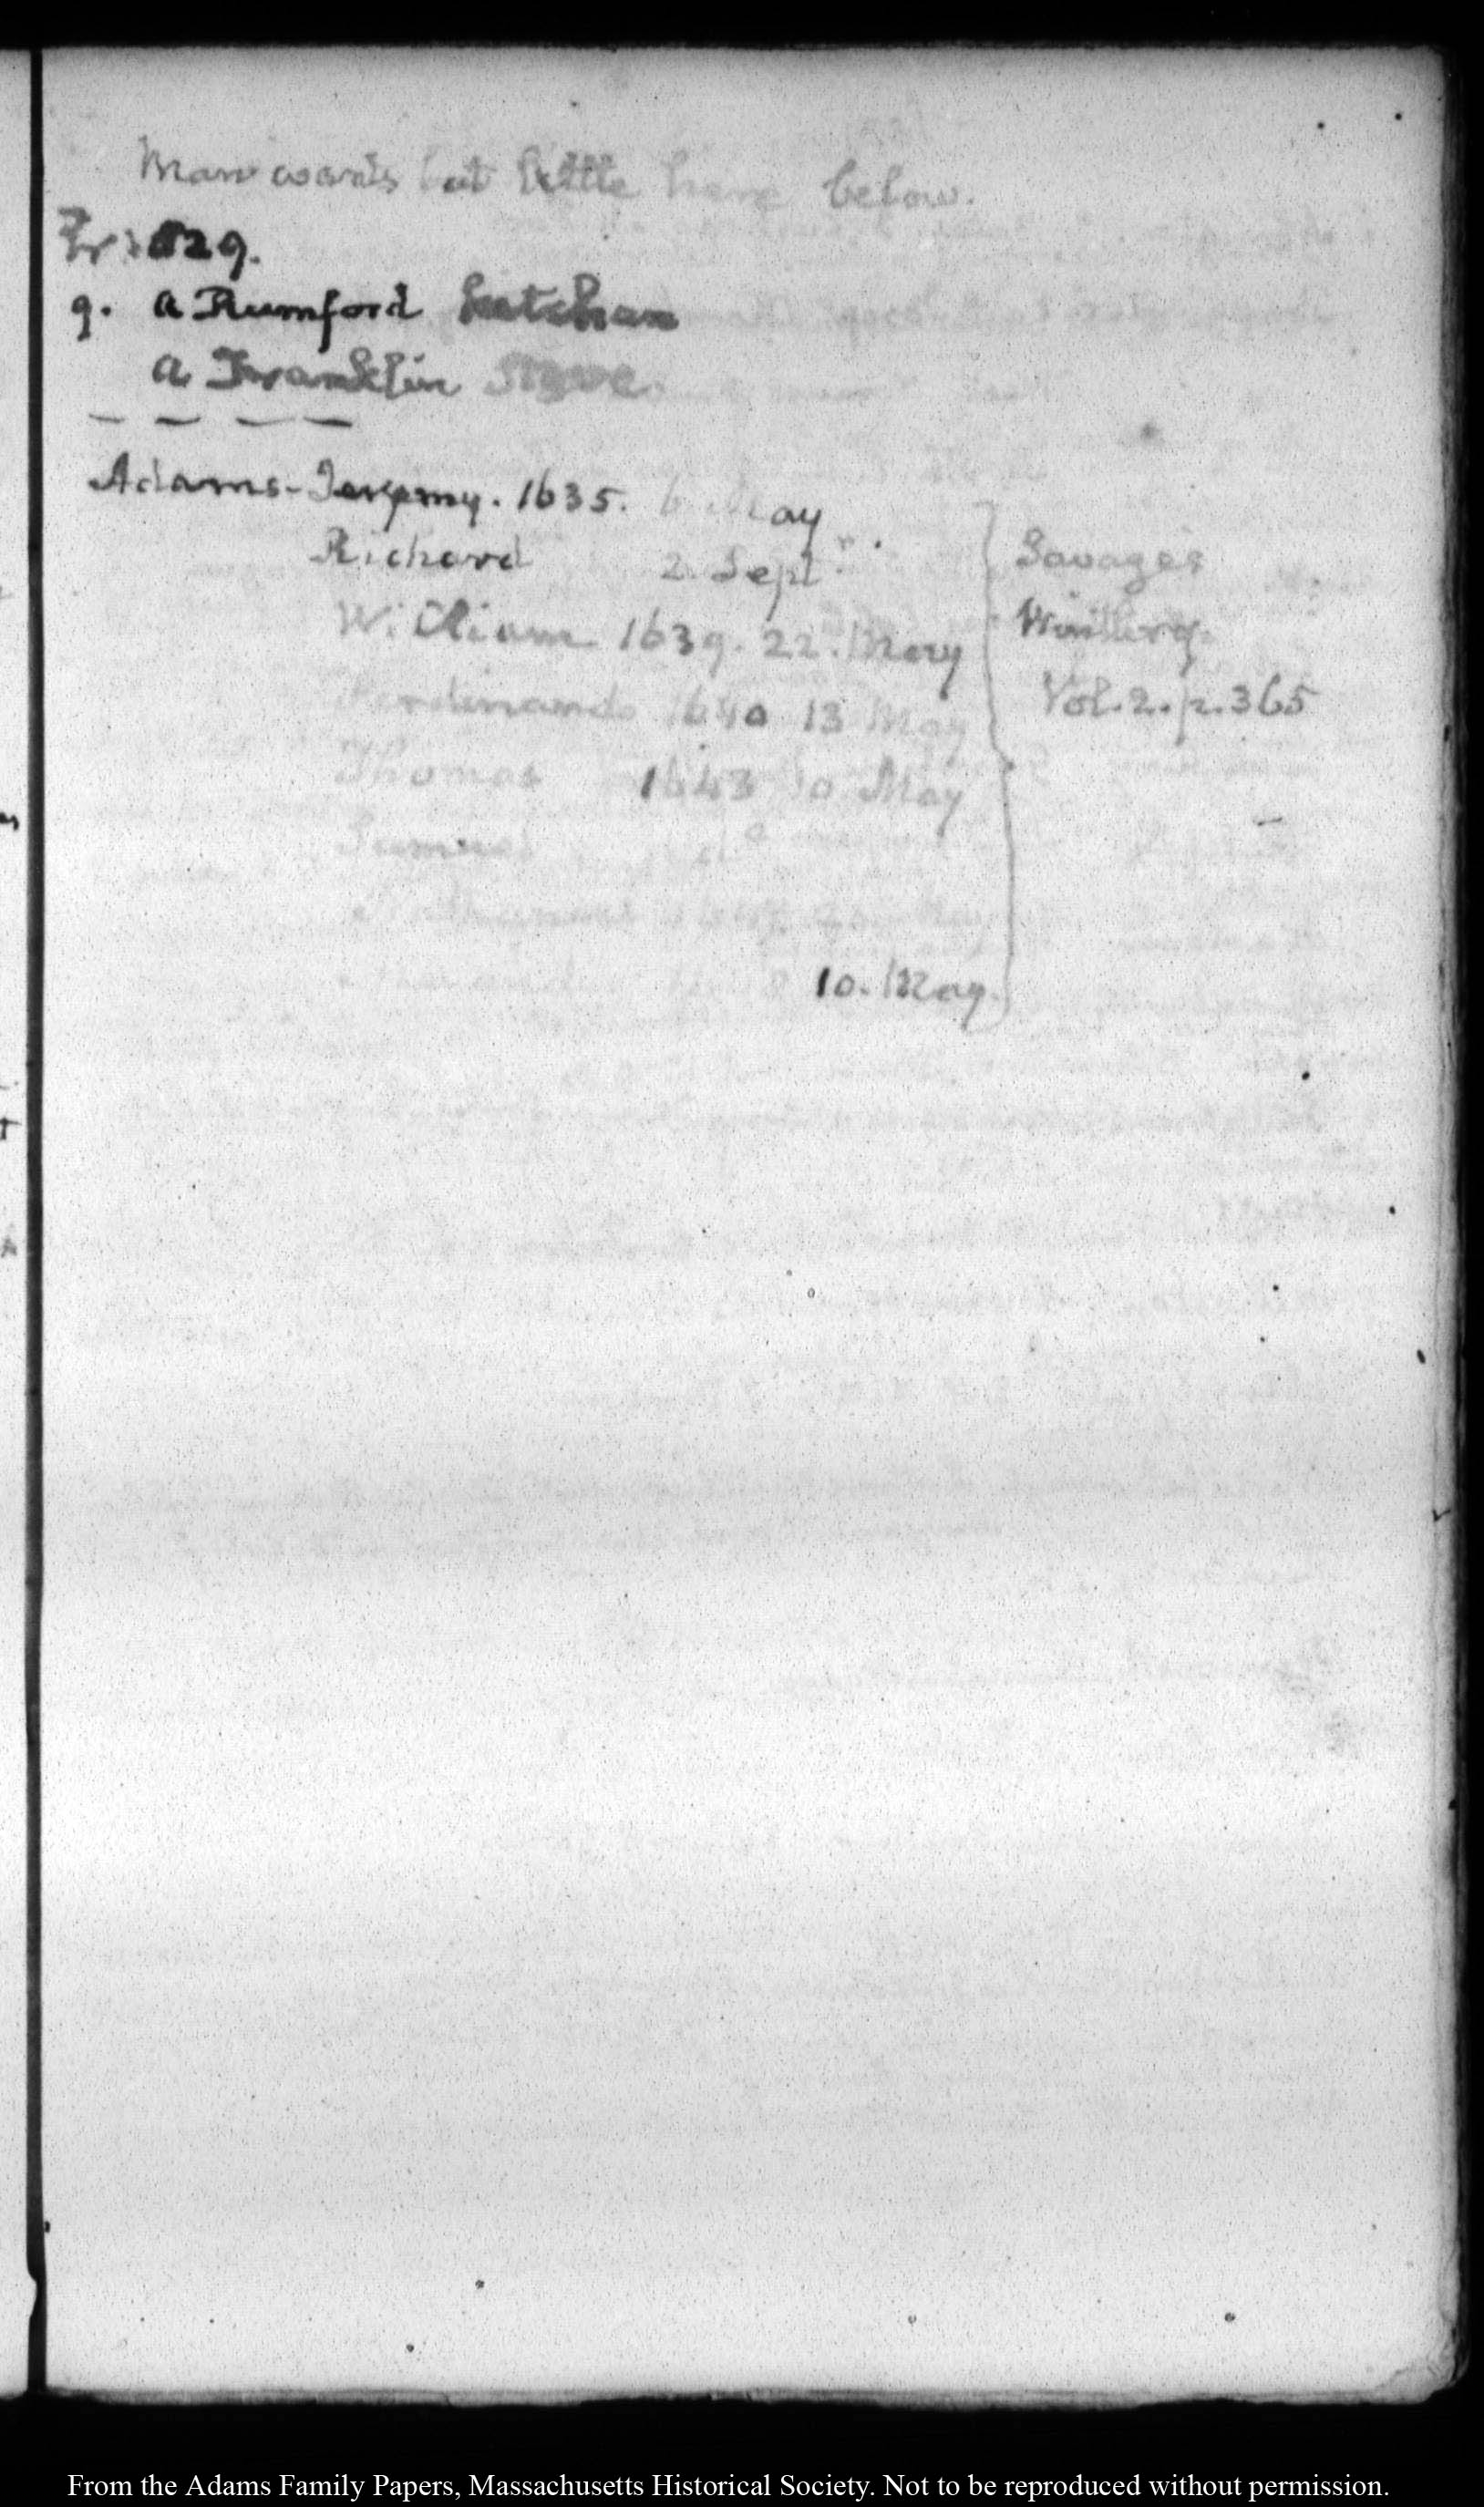 Man wants but little here below.
1829.
9. a Rumford kitchen
a Franklin Stove.
Adams - Jeremy. 1635. 6. May
Richard 2. Septr.
William 1639. 22. May
Ferdinando 1640 13 May
Thomas 1643 10 May
Samuel do
Nathaniel
10. May.
Savage's
Winthrop.
Vol. 2. p. 365
From the Adams Family Papers, Massachusetts Historical Society. Not to be reproduced without permission.